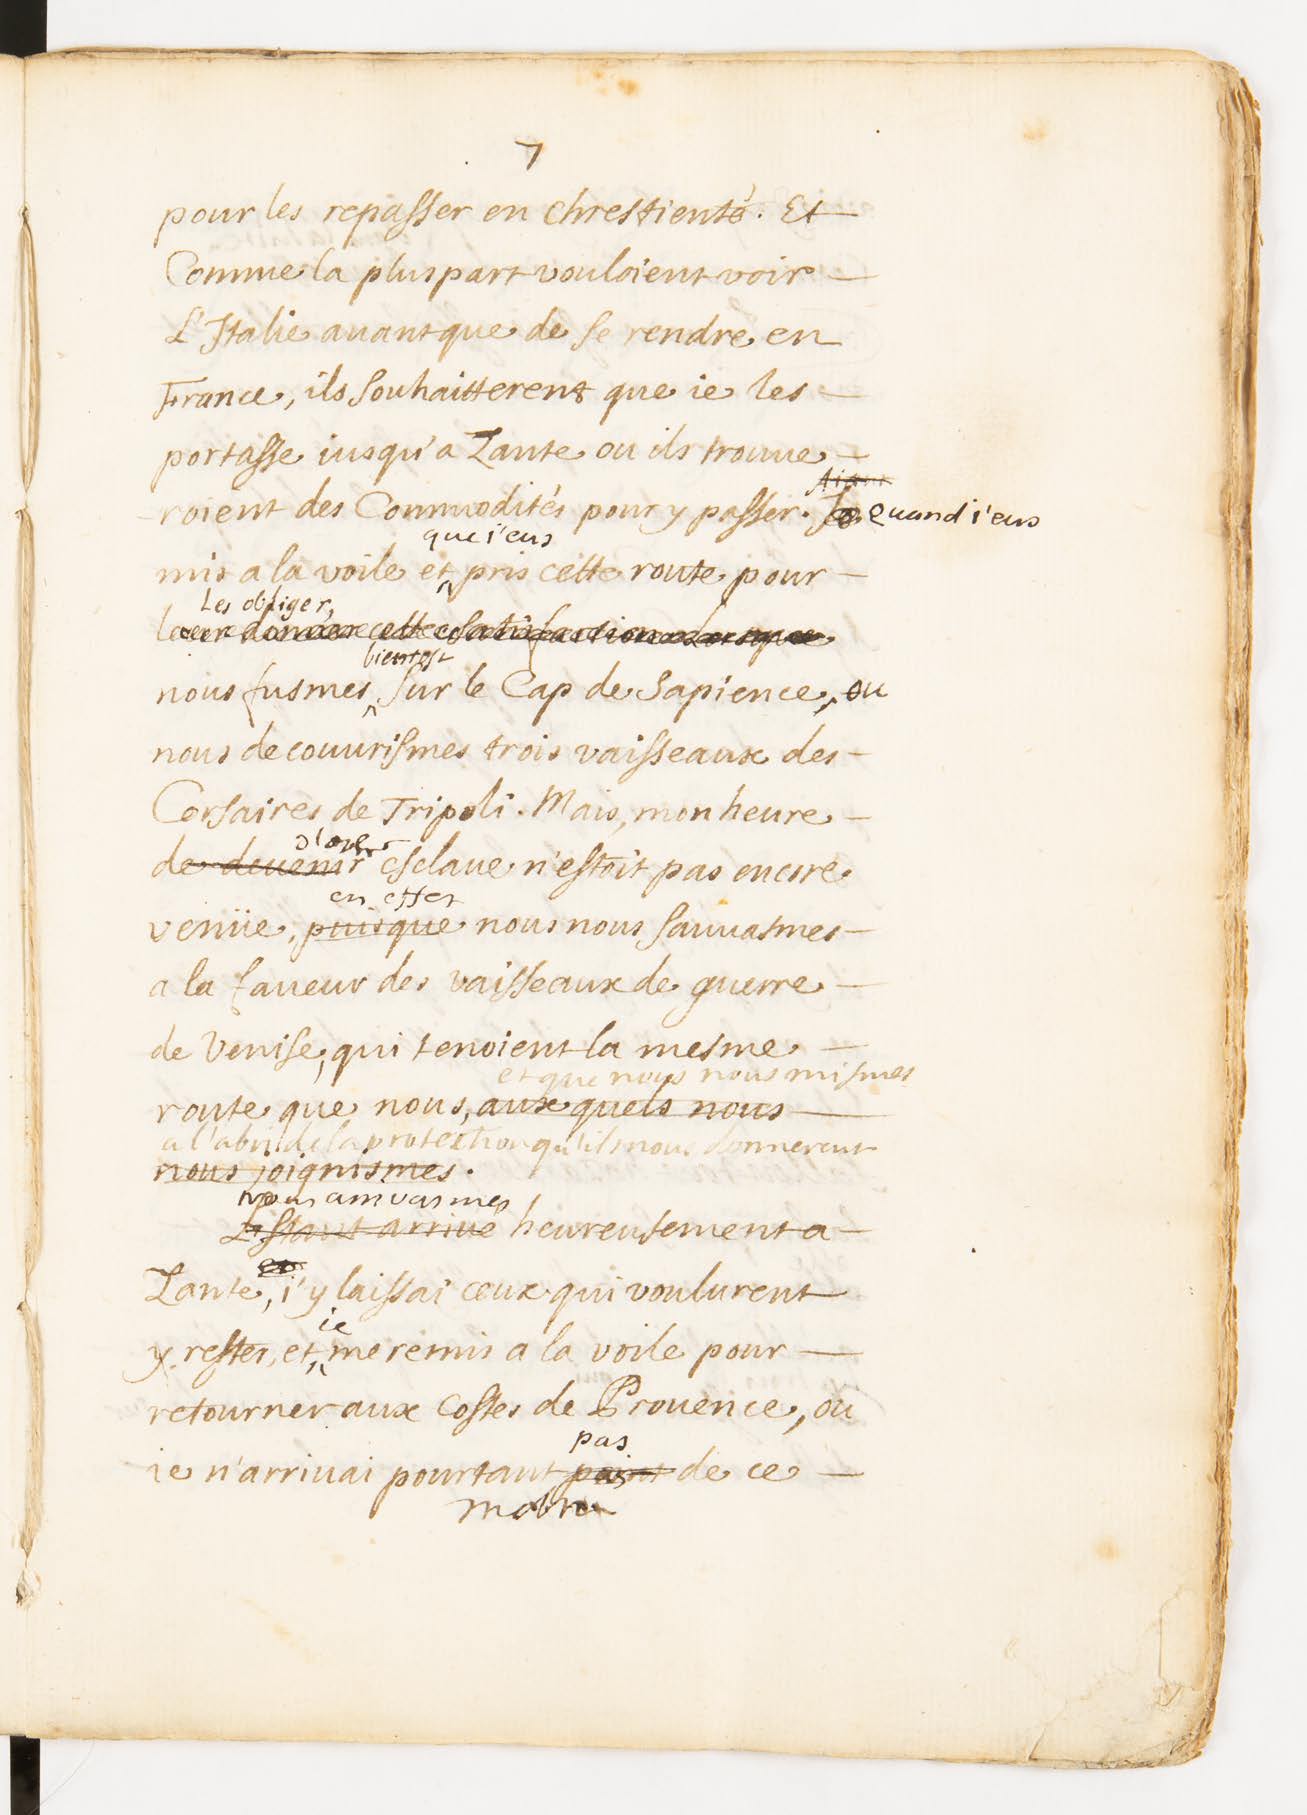 7
pour les repasser en chrestienté. Et
Comme la pluspart vouloient voir
L'Italie auant que de se rendre en
France, ils souhaitterent que ie les
portasse iusqu'a Zante ou ils trouue
Aiant
roient des Commodités pour y passer. Je quand i'eus
que i'eus
mis a la voile et pris cette route pour
Les obliger,
leur donner cette satisfaction lorsque
bientost
nous fusmes sur le Cap de Sapience, ou
nous decouurismes trois vaisseaux des
Corsaires de Tripoli. Mais, mon heure
d'estre
de deuenir esclaue n'estoit pas encore
en effet
venüe, puisque nous nous sauuasmes
a la faueur des vaisseaux de guerre
de Venise, qui tenoient la mesme
et que nous nous mismes
route que nous, auxquels nous
a l'abri de la protection qu'ils nous donnerent
nous joignismes.
nous arriuasmes
Estant arriué heureusement a
et
Zante, i'y laissai ceux qui voulurent
ie
y rester, et me remis a la voile pour
retourner aux costes de Prouence, ou
pas
ie n'arriuai pourtant point de ce